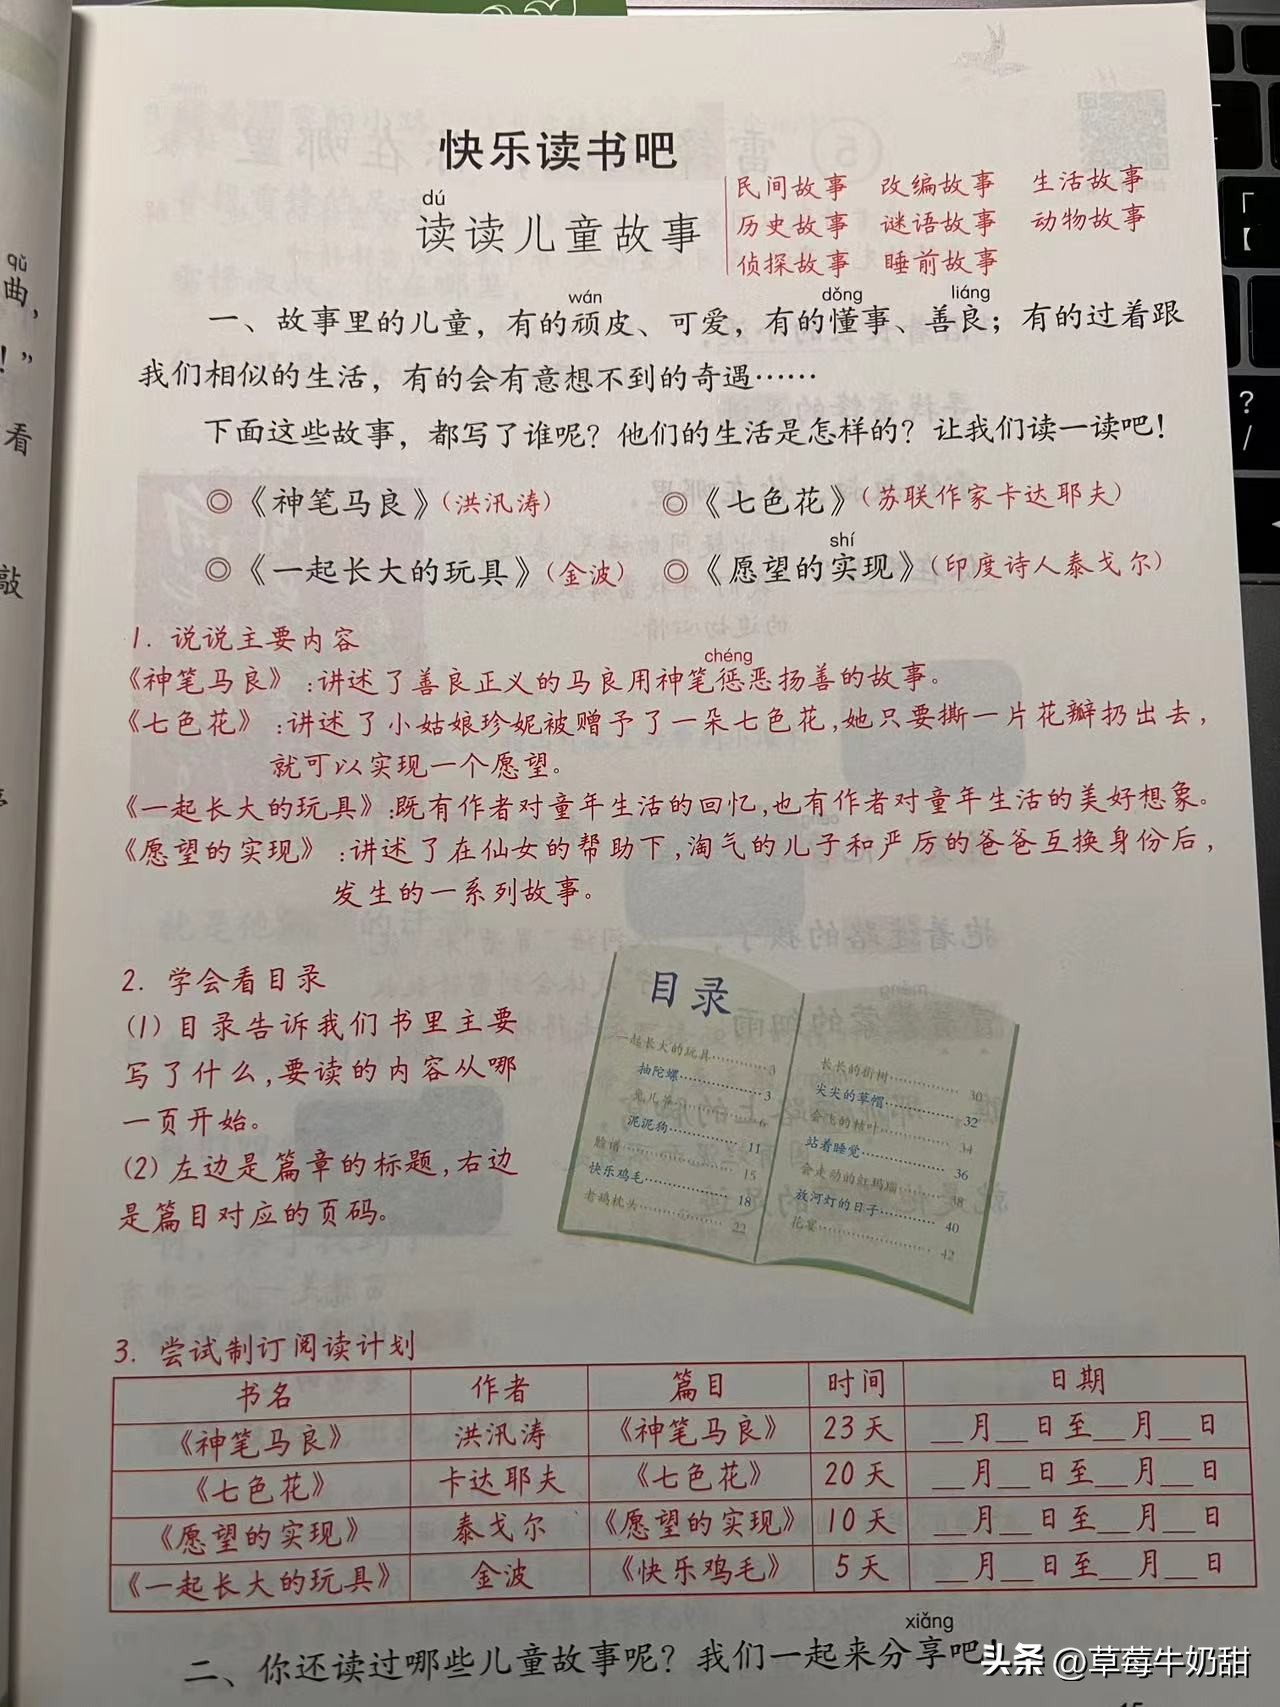 快乐读书吧
dú
读读儿童故事
民间故事 改编故事 生活故事
历史故事 谜语故事 动物故事
侦探故事 睡前故事
qǔ
曲，
！”
看
敲
wán dǒng liáng
一、故事里的儿童，有的顽皮、可爱，有的懂事、善良；有的过着跟
我们相似的生活，有的会有意想不到的奇遇……
下面这些故事，都写了谁呢？他们的生活是怎样的？让我们读一读吧！
◎《神笔马良》（洪汛涛） ◎《七色花》（苏联作家卡达耶夫）
shí
◎《一起长大的玩具》（金波） ◎《愿望的实现》（印度诗人泰戈尔）
1. 说说主要内容
chéng
《神笔马良》：讲述了善良正义的马良用神笔惩恶扬善的故事。
《七色花》：讲述了小姑娘珍妮被赠予了一朵七色花，她只要撕一片花瓣扔出去，
就可以实现一个愿望。
《一起长大的玩具》：既有作者对童年生活的回忆，也有作者对童年生活的美好想象。
《愿望的实现》：讲述了在仙女的帮助下，淘气的儿子和严厉的爸爸互换身份后，
发生的一系列故事。
2. 学会看目录
（1）目录告诉我们书里主要
写了什么，要读的内容从哪
一页开始。
（2）左边是篇章的标题，右边
是篇目对应的页码。
目录
一起长大的玩具…………3
抽陀螺…………3
兔儿爷…………6
泥泥狗…………11
脸谱…………15
快乐鸡毛…………18
老鸡枕头…………22
长长的街树…………30
尖尖的草帽…………32
会飞的枯叶…………34
站着睡觉…………36
会走动的红玛瑙…………38
放河灯的日子…………40
花宴…………42
3. 尝试制订阅读计划
书名 作者 篇目 时间 日期
《神笔马良》 洪汛涛 《神笔马良》 23天 __月__日至__月__日
《七色花》 卡达耶夫 《七色花》 20天 __月__日至__月__日
《愿望的实现》 泰戈尔 《愿望的实现》 10天 __月__日至__月__日
《一起长大的玩具》 金波 《快乐鸡毛》 5天 __月__日至__月__日
xiǎng
二、你还读过哪些儿童故事呢？我们一起来分享吧
头条 @草莓牛奶甜